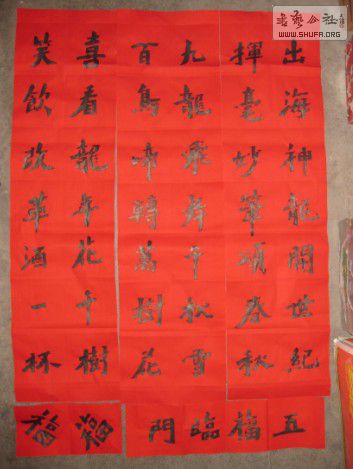 出海神龍開世紀
揮毫妙筆頌春秋
九龍飛舞千秋雪
百鳥啼轉萬樹花
喜看龍年花千樹
笑飲改革酒一杯
五福臨門
福
福
書藝公社
WWW.SHUFA.ORG